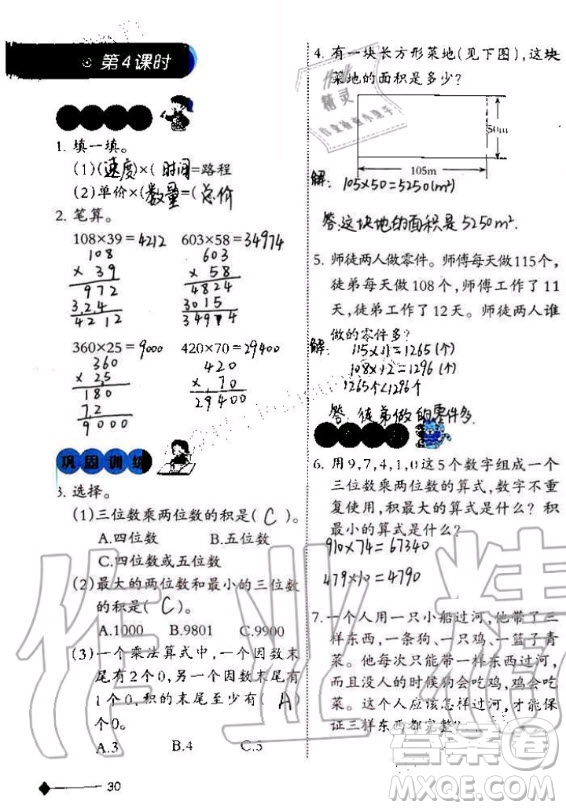 第4课时
1. 填一填。
(1)(速度)×(时间)=路程
(2)单价×(数量)=(总价)
2. 笔算。
108×39=4212 603×58=34974
108
×39
972
3,2,4
4212
603
×58
4824
3015
34974
360×25=9000 420×70=29400
360
×25
180
7,2
9000
420
×70
29400
巩固训练
3. 选择。
(1)三位数乘两位数的积是( C )。
A.四位数 B.五位数
C.四位数或五位数
(2)最大的两位数和最小的三位数
的积是( C )。
A.1000 B.9801 C.9900
(3)一个乘法算式中,一个因数末
尾有2个0,另一个因数末尾有
1个0,积的末尾至少有( A )
个0。
A.3 B.4 C.5
30
4. 有一块长方形菜地(见下图),这块
菜地的面积是多少?
50m
105m
解: 105×50=5250(m²)
答:这块地的面积是5250m².
5. 师徒两人做零件。师傅每天做115个,
徒弟每天做108个,师傅工作了11
天,徒弟工作了12天。师徒两人谁
做的零件多?
解: 115×11=1265(个)
108×12=1296(个)
1265个<1296个
答:徒弟做的零件多.
6. 用9,7,4,1,0这5个数字组成一个
三位数乘两位数的算式,数字不重
复使用,积最大的算式是什么?积
最小的算式是什么?
910×74=67340
479×10=4790
7. 一个人用一只小船过河,他带了三
样东西,一条狗、一只鸡,一篮青
菜。他每次只能带一样东西过河,
而且没人的时候狗会吃鸡,鸡会吃
菜。这个人应该怎样过河,才能保
证三样东西都完整?
作业精
答案卷
MXQE.COM